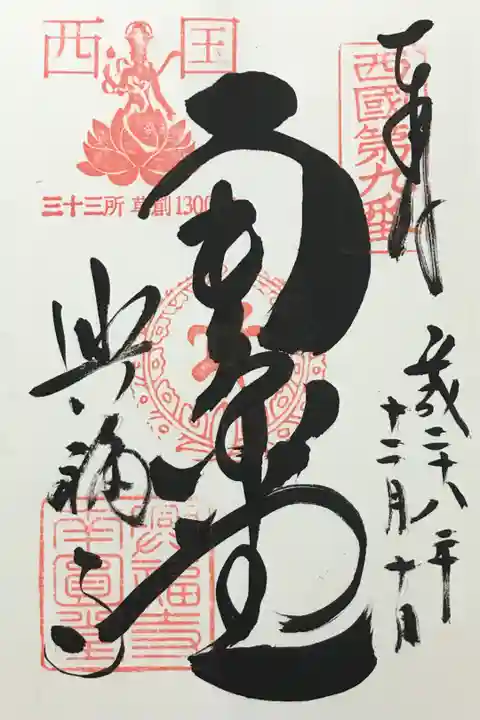 奉拝
西國第九番
平成二十八年
十二月十日
南円堂
西国
三十三所 草創1300
興福寺
興福寺
南圓堂